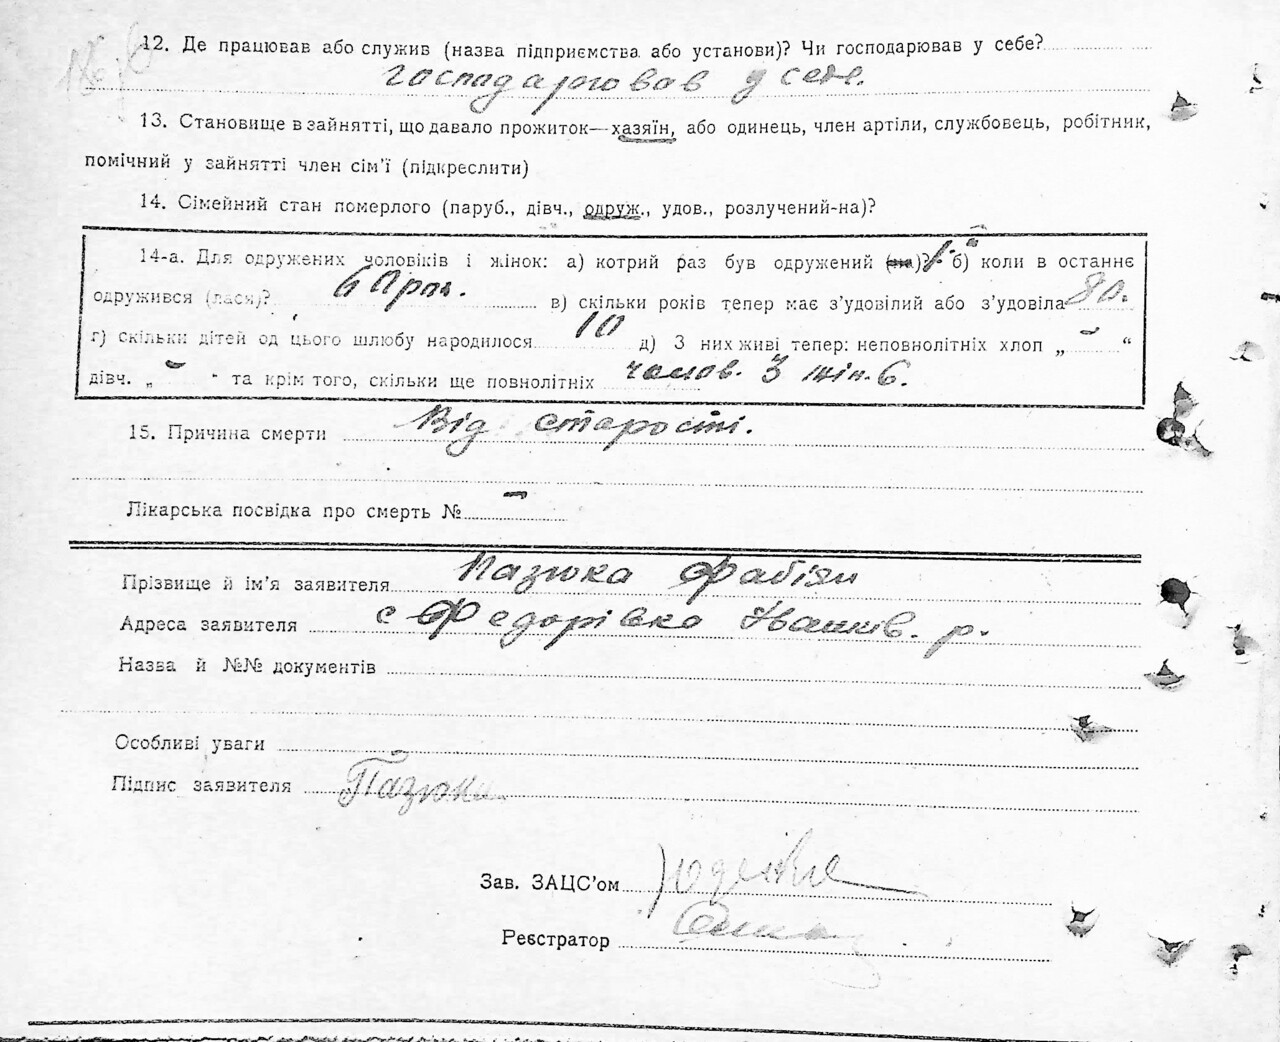 12. Де працював або служив (назва підприємства або установи)? Чи господарював у себе?
господарював у себе.
13. Становище в зайнятті, що давало прожиток—хазяїн, або одинець, член артіли, службовець, робітник,
помічний у зайнятті член сім'ї (підкреслити)
14. Сімейний стан померлого (паруб., дівч., одруж., удов., розлучений-на)?
14-а. Для одружених чоловіків і жінок: а) котрий раз був одружений (на)? 1. б) коли в останнє
одружився (лася)? в) скільки років тепер має з'удовілий або з'удовіла 80.
г) скільки дітей од цього шлюбу народилося 10 д) З них живі тепер: неповнолітніх хлоп „ – “
дівч. „ – " та крім того, скільки ще повнолітніх чолов. 3 жін. 6.
15. Причина смерти Від старости.
Лікарська посвідка про смерть № –
Прізвище й ім'я заявителя Пазюка Фабіян
Адреса заявителя с Федорівка Іванків. р.
Назва й №№ документів
Особливі уваги
Підпис заявителя Пазюка
Зав. ЗАЦС'ом
Реєстратор